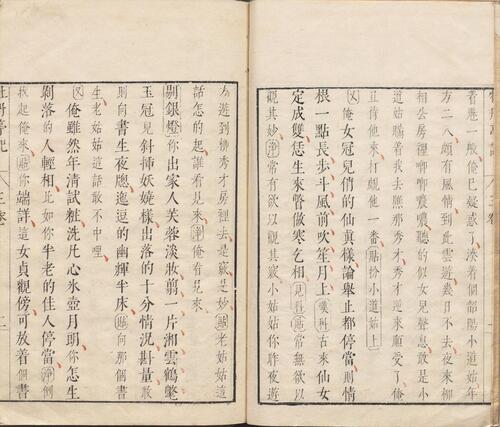 者庵一般俺已疑惑了湊着個韶陽小道姑年
方二八頗有風情到此雲遊幾日不去夜來柳
相公房裡唧唧噥噥聽的似女兒聲息敢是小
道姑瞞着我去瞧那秀才秀才逆來順受了俺
且待他來打覷他一番貼扮小道姑上
又俺女冠兒俏的仙眞樣論舉止都停當則情
根一點長步斗風前吹笙月上嘆科古來仙女
定成雙恁生來做寒乞相見科貼常無欲以
觀其妙淨常有欲以觀其竅小姑姑你昨夜遊
方遊到柳秀才房裡去是竅是妙貼老姑姑這
話怎的起誰看見來淨俺看見來
剔銀燈你出家人芙蓉淡妝剪一片湘雲鶴氅
玉冠兒斜插妖嬈樣出落的十分情況斟量敢
則向書生夜窗迤逗的幽輝半床貼向那個書
生老姑姑這話敢不中哩
又俺雖然年清試粧洗凡心氷壺月朗你怎生
剝落的人輕相比如你半老的佳人停當淨倒
栽起俺來貼你端詳這女貞觀傍可放着個書
牡丹亭記
三卷
二